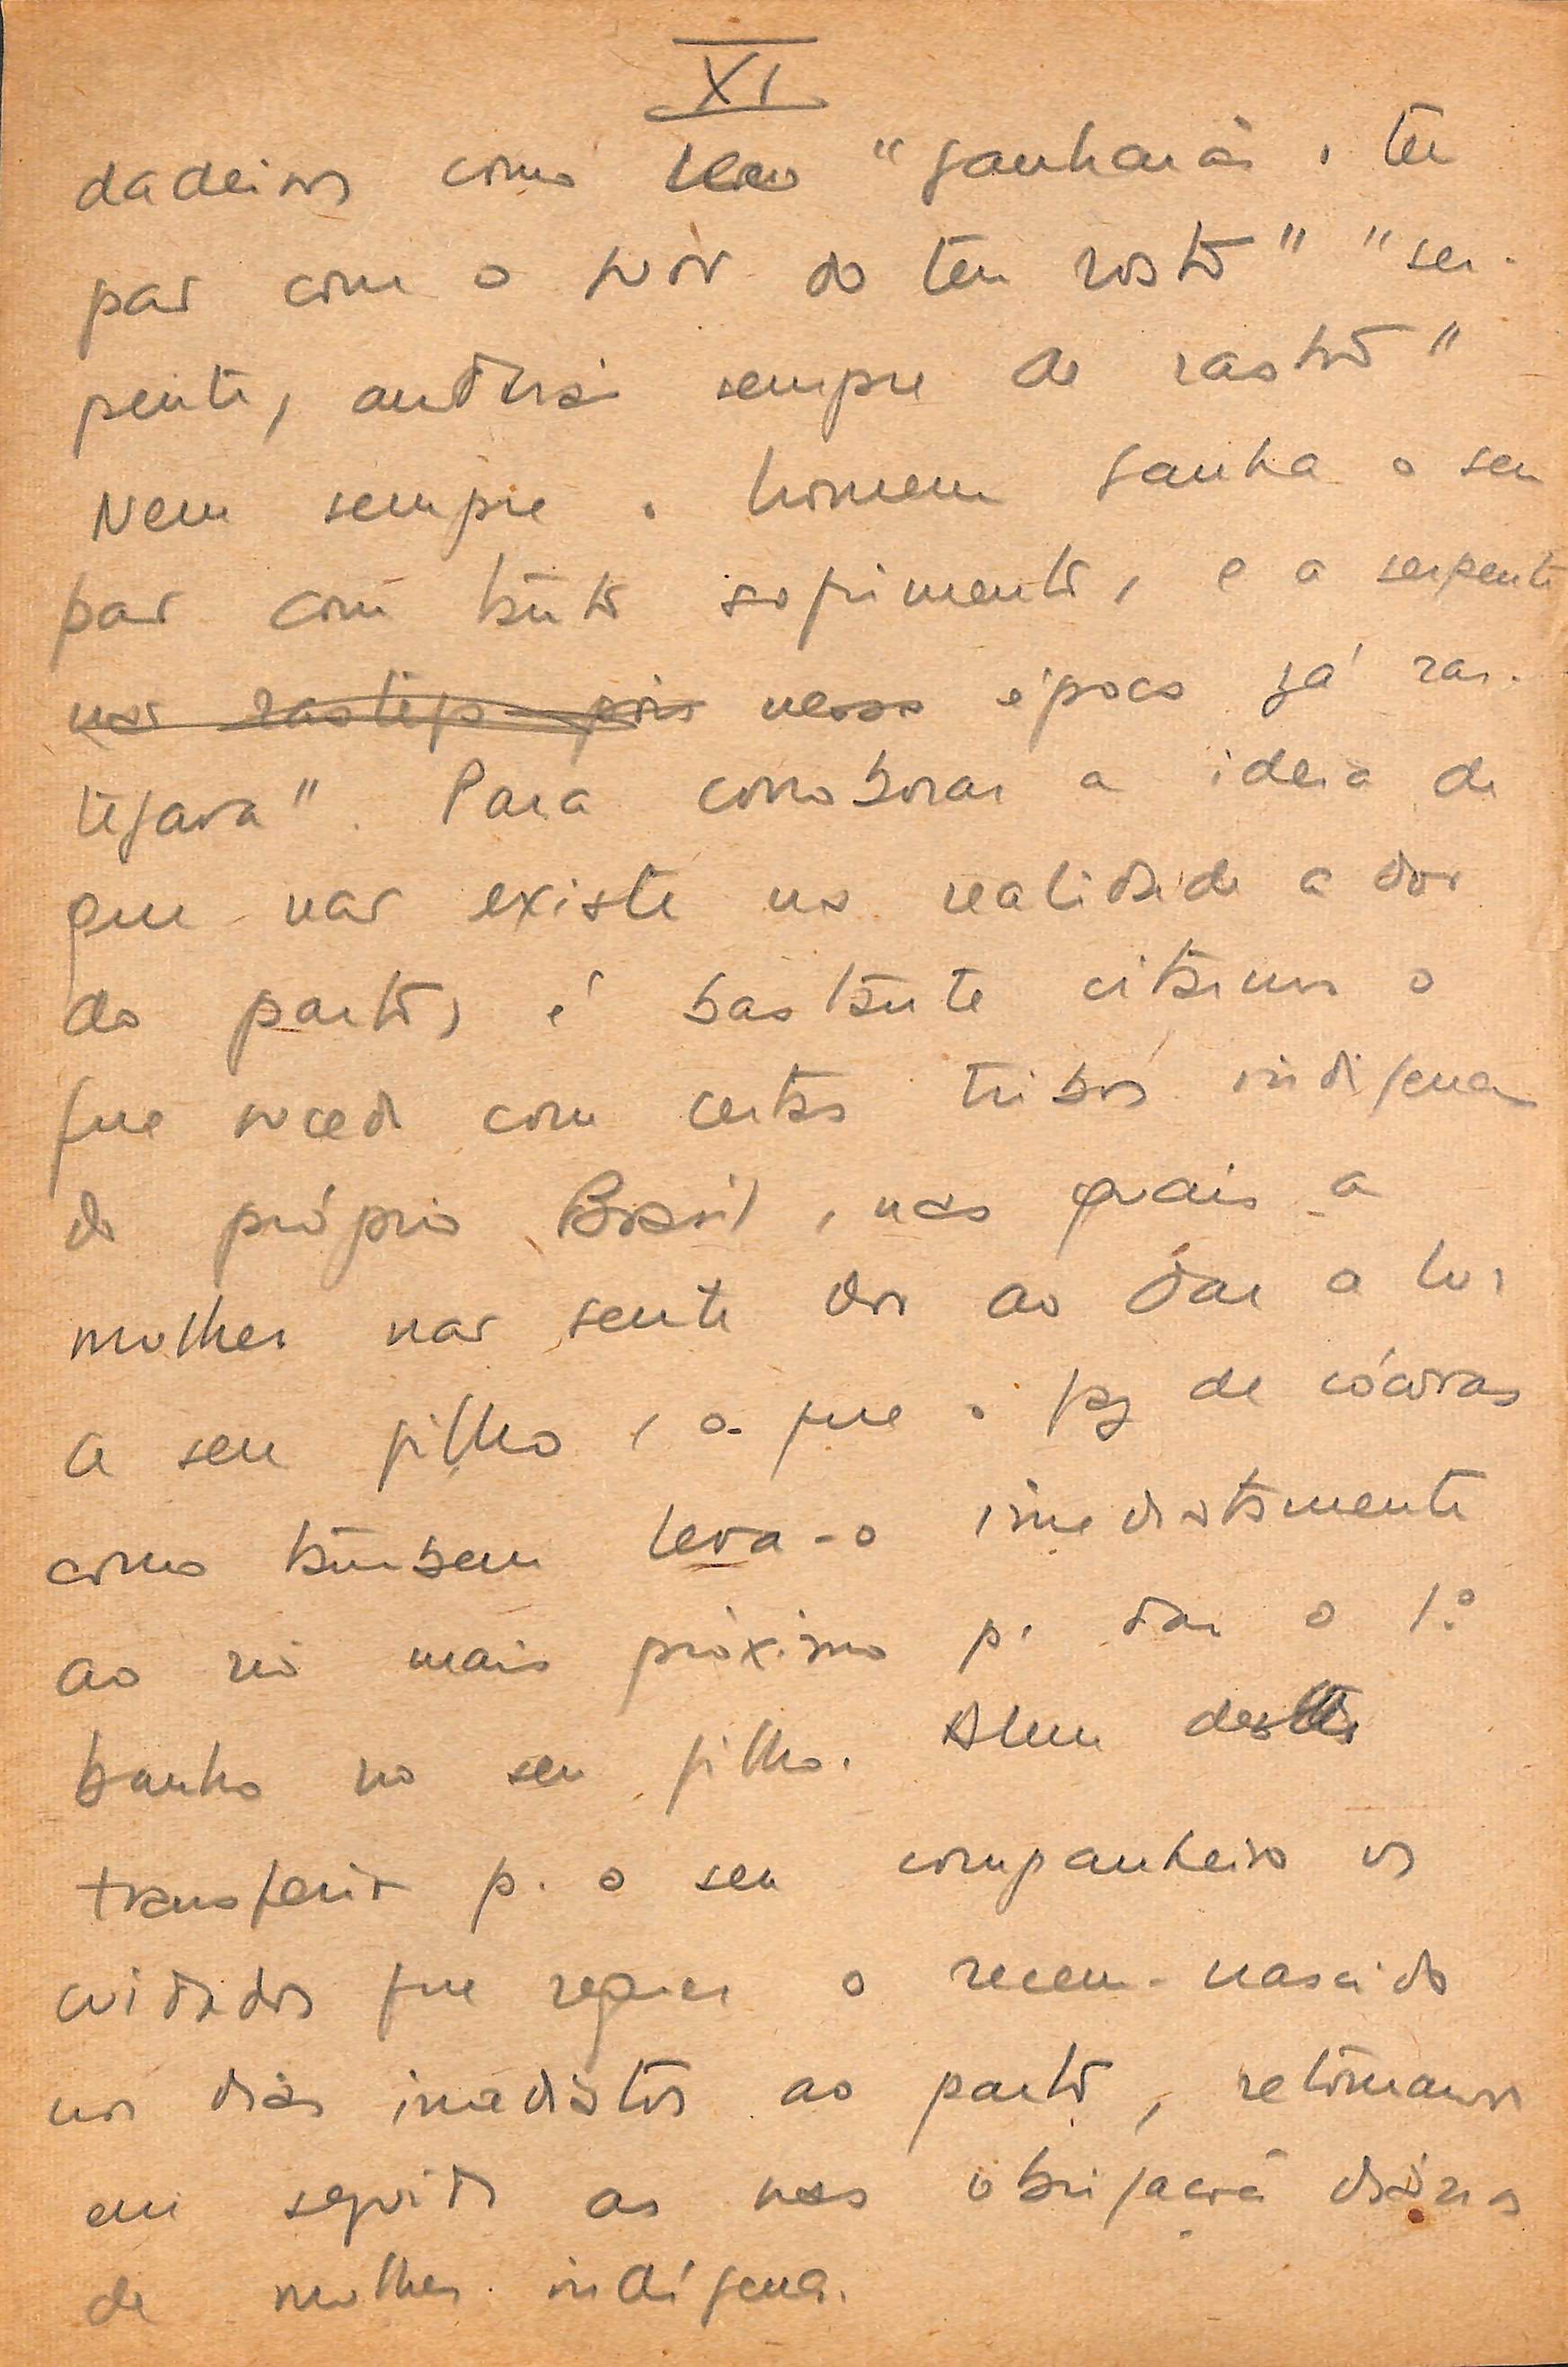 XI
dadeiros como "ganharás o teu
pão com o suor do teu rosto" "ser-
pente, andarás sempre de rastro"
Nem sempre o homem ganha o seu
pão com tanto sofrimento, e a serpente
não rasteja pois nessa época já ras-
tejava". Para corroborar a ideia de
que não existe na realidade a dor
do parto, é bastante citarmos o
que sucede com certas tribos indigenas
do próprio Brasil, nas quais a
mulher não sente dor ao dar a luz
a seu filho, o que o faz de cócoras
como tambem leva-o imediatamente
ao rio mais próximo p. dar o 1.º
banho no seu filho. Alem deste
transferir p. o seu companheiro os
cuidados que requer o recem-nascido
nos dias imediatos ao parto, retomando
em seguida as suas obrigações diárias
de mulher indígena.